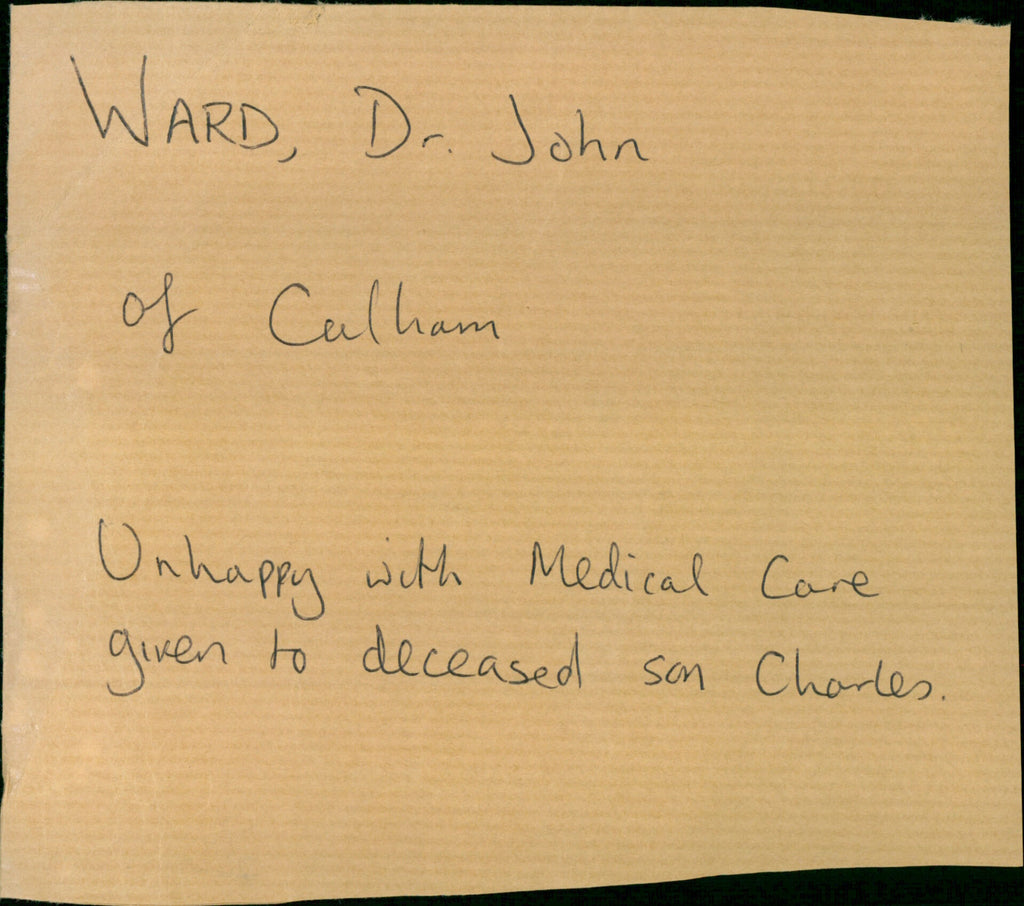 WARD, Dr. John
of Culham
Unhappy with Medical Care
given to deceased son Charles.